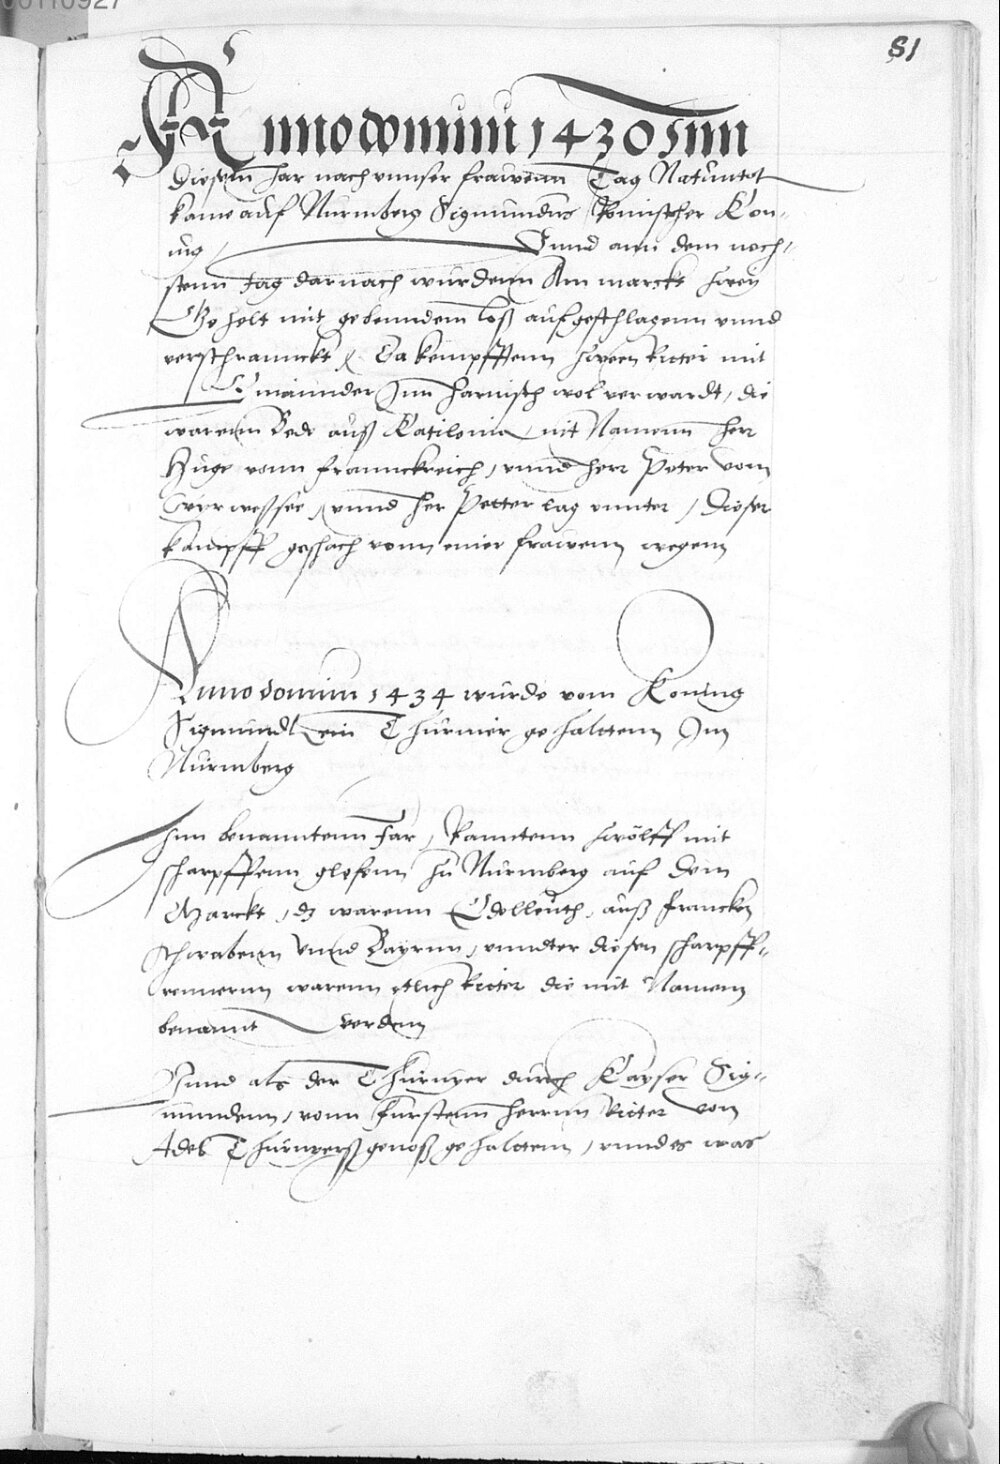 00110927
81
Anno domini 1430 Inn
Diesem Jar nach vnnser frawenn Tag Natiuitet
kame auf Nürmberg Sigmundus Römischer Kön-
nig / Vnnd ann dem nech-
stenn tag darnach wurdenn Am marckt zwen
gehelt mit auf geschlagenn vnnd
verschrannckt / Da kempfftenn zween Ritter mit
einannder Inn harnisch wol verwardt / die
warenn Bede auß Katilonia / mit Namenn herr
Huge vonn Frannckreich / vnnd herr Peter vom
vnnd her Petter lag vnnter / Dieser
kampff geschach vonn einer frawenn wegenn
Anno domini 1434 wurde vom Koning
Sigmundt ein Thurnier gehalttenn Inn
Nürmberg
Inn benanntenn Jar / Ranntenn zwölff mit
scharpffenn glefenn zu Nürmberg auf dem
Marckt / dz warenn Edelleuth / auß Francken
Schwabenn Vnnd Bayrnn / vnndter diesen scharpff-
rennernn warenn etlich Ritter die mit Namenn
benannt werdenn
Vnnd als der Thurnyer durch Kayser Sig-
mundenn / vonn Fürstenn herrnn Ritter von
Adel Thurnyerß genoß gehalttenn / vnnd es was